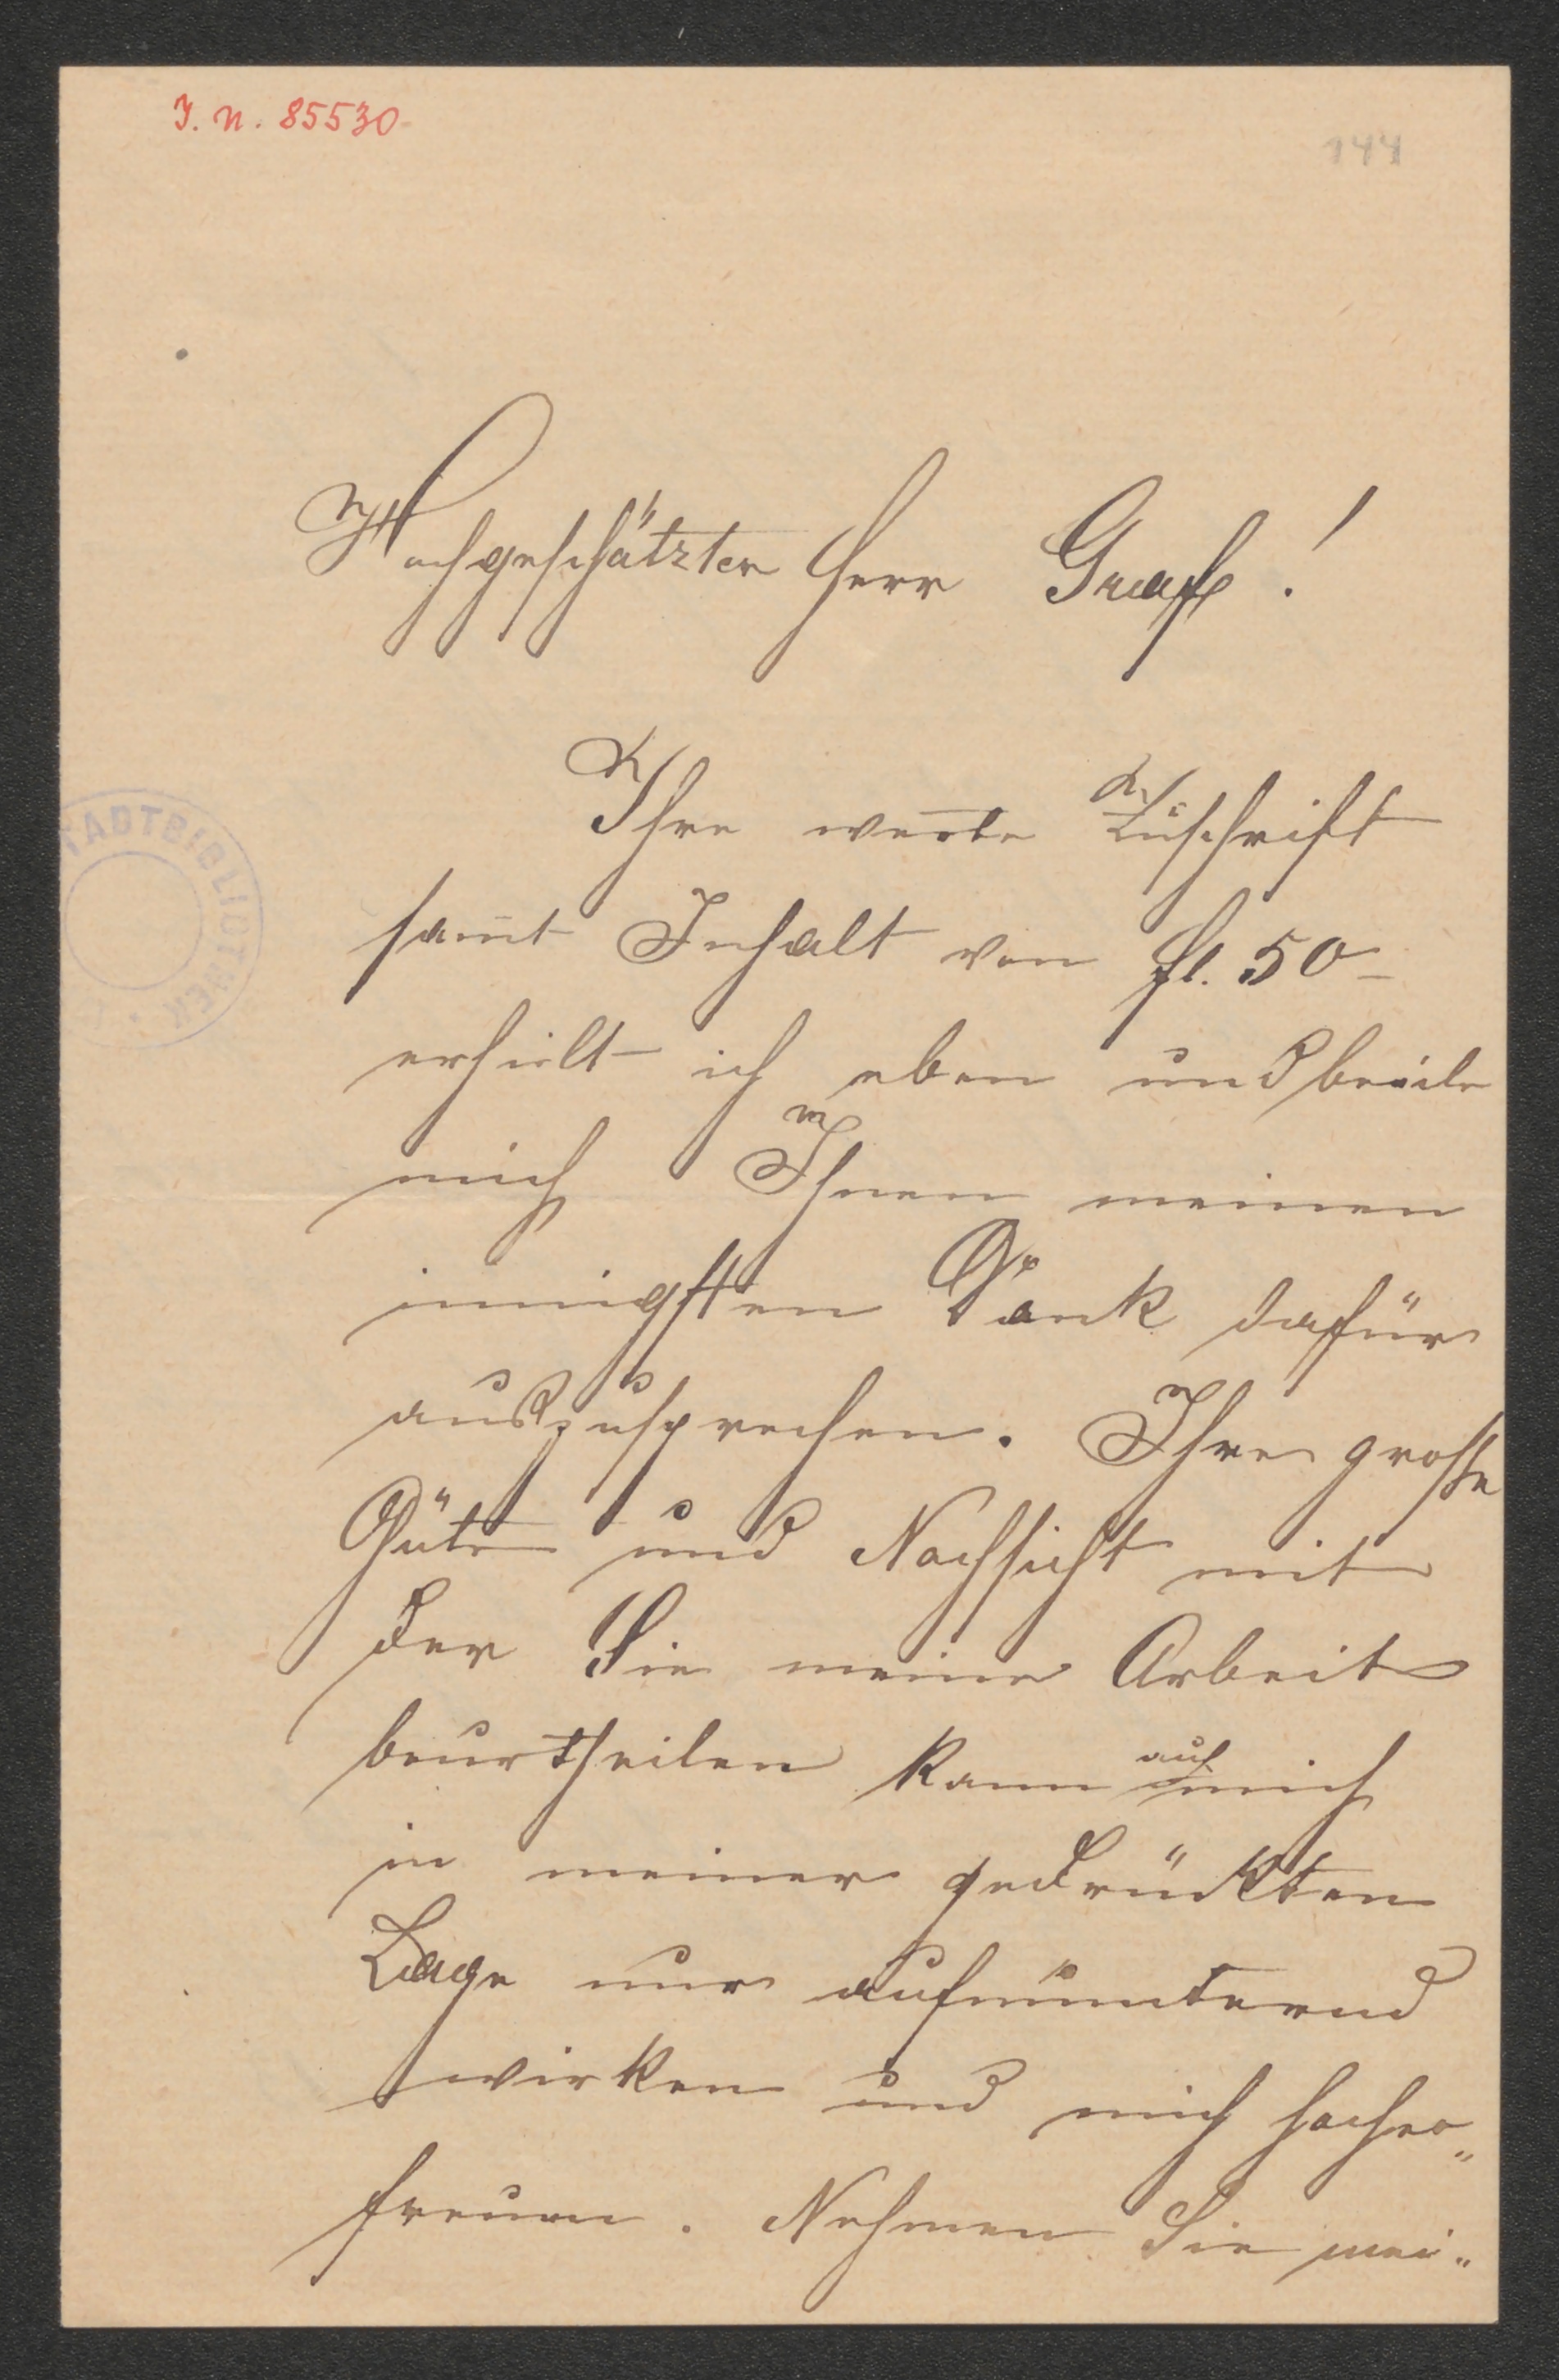 J. N. 85530
144
Hochgeschätzter Herr Graf!
Ihre werte Zuschrift
samt Inhalt von fl. 50-
erhielt ich eben und beeile
mich Ihnen meinen
innigsten Dank dafür
auszusprechen. Ihre grosse
Güte und Nachsicht mit
der Sie meine Arbeit
beurtheilen kann auf mich
in meiner gedrückten
Lage nur aufmunternd
wirken und mich hocher„
freuen. Nehmen Sie mei„
STADTBIBLIOTHEK